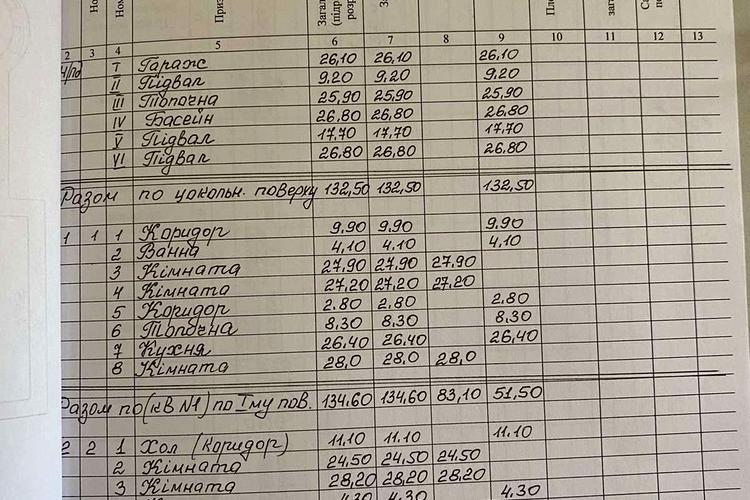 Но Ном Приз Загал (підр розр За Пл зага Са по
2 3 4 5 6 7 8 9 10 11 12 13
ц/пд I Гараж 26,10 26,10 26,10
II Підвал 9,20 9,20 9,20
III Топочна 25,90 25,90 25,90
IV Басейн 26,80 26,80 26,80
V Підвал 17,70 17,70 17,70
VI Підвал 26,80 26,80 26,80
Разом по цокольн. поверху 132,50 132,50 132,50
1 1 1 Коридор 9,90 9,90 9,90
2 Ванна 4,10 4,10 4,10
3 Кімната 27,90 27,90 27,90
4 Кімната 27,20 27,20 27,20
5 Коридор 2.80 2.80 2.80
6 Топочна 8,30 8,30 8.30
7 Кухня 26,40 26,40 26,40
8 Кімната 28,0 28,0 28,0
Разом по (кв №1) по Iму пов. 134.60 134,60 83,10 51,50
2 2 1 Хол (коридор) 11.10 11.10 11.10
2 Кімната 24,50 24,50 24.50
3 Кімната 28,20 28,20 28,20
4.30 4.30 4.30